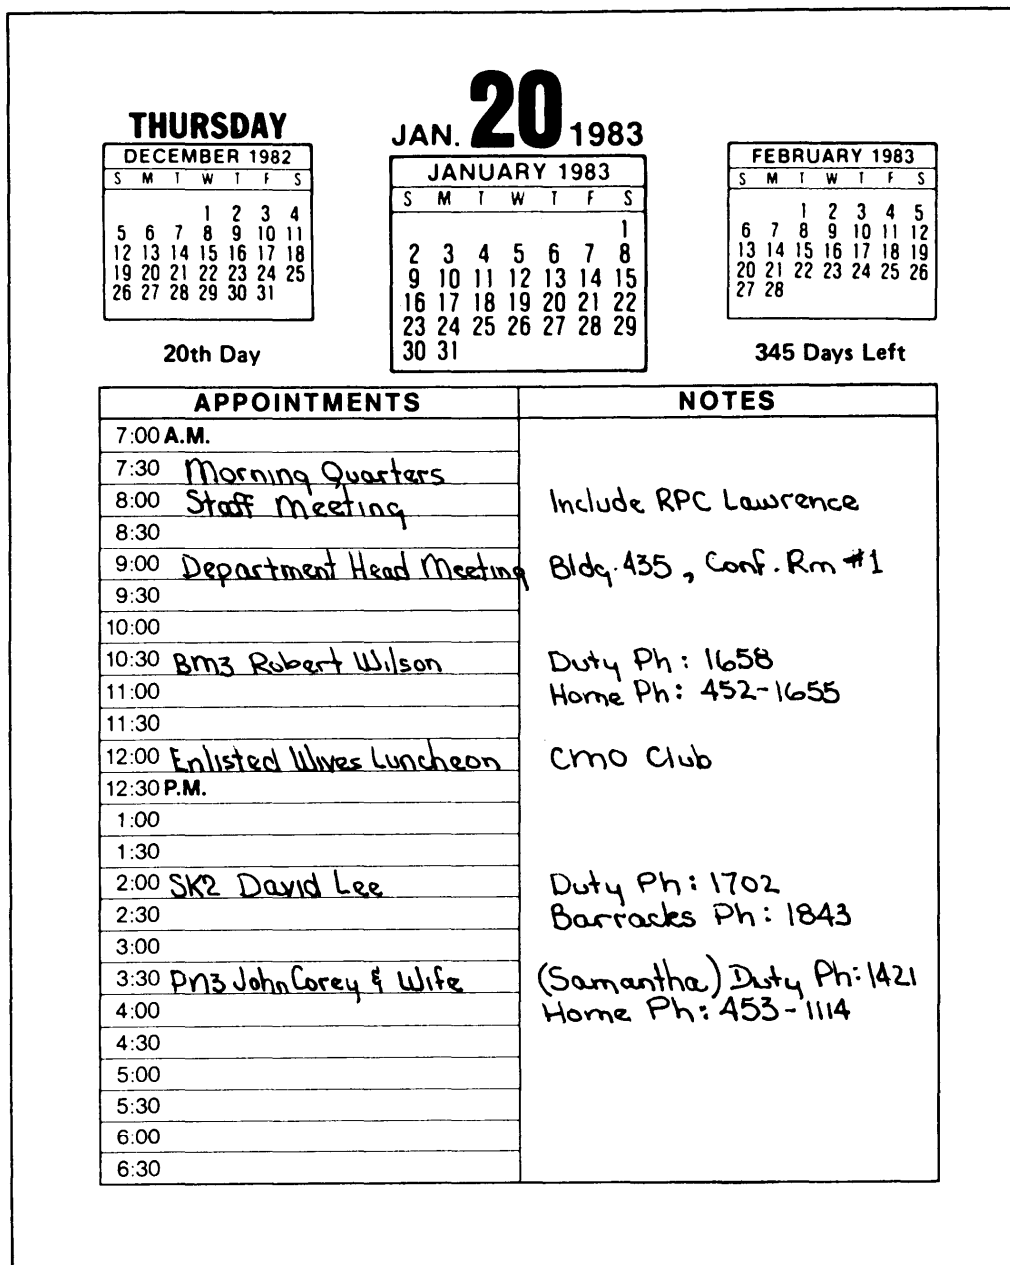 THURSDAY
JAN. 20 1983
DECEMBER 1982
S M T W T F S
1 2 3 4
5 6 7 8 9 10 11
12 13 14 15 16 17 18
19 20 21 22 23 24 25
26 27 28 29 30 31
20th Day
JANUARY 1983
S M T W T F S
1
2 3 4 5 6 7 8
9 10 11 12 13 14 15
16 17 18 19 20 21 22
23 24 25 26 27 28 29
30 31
FEBRUARY 1983
S M T W T F S
1 2 3 4 5
6 7 8 9 10 11 12
13 14 15 16 17 18 19
20 21 22 23 24 25 26
27 28
345 Days Left
APPOINTMENTS NOTES
7:00 A.M.
7:30 Morning Quarters
8:00 Staff Meeting Include RPC Lawrence
8:30
9:00 Department Head Meeting Bldg. 435, Conf. Rm #1
9:30
10:00
10:30 BM3 Robert Wilson Duty Ph: 1658
11:00 Home Ph: 452-1655
11:30
12:00 Enlisted Wives Luncheon CMO Club
12:30 P.M.
1:00
1:30
2:00 SK2 David Lee Duty Ph: 1702
2:30 Barracks Ph: 1843
3:00
3:30 PN3 John Corey & Wife (Samantha) Duty Ph: 1421
4:00 Home Ph: 453-1114
4:30
5:00
5:30
6:00
6:30